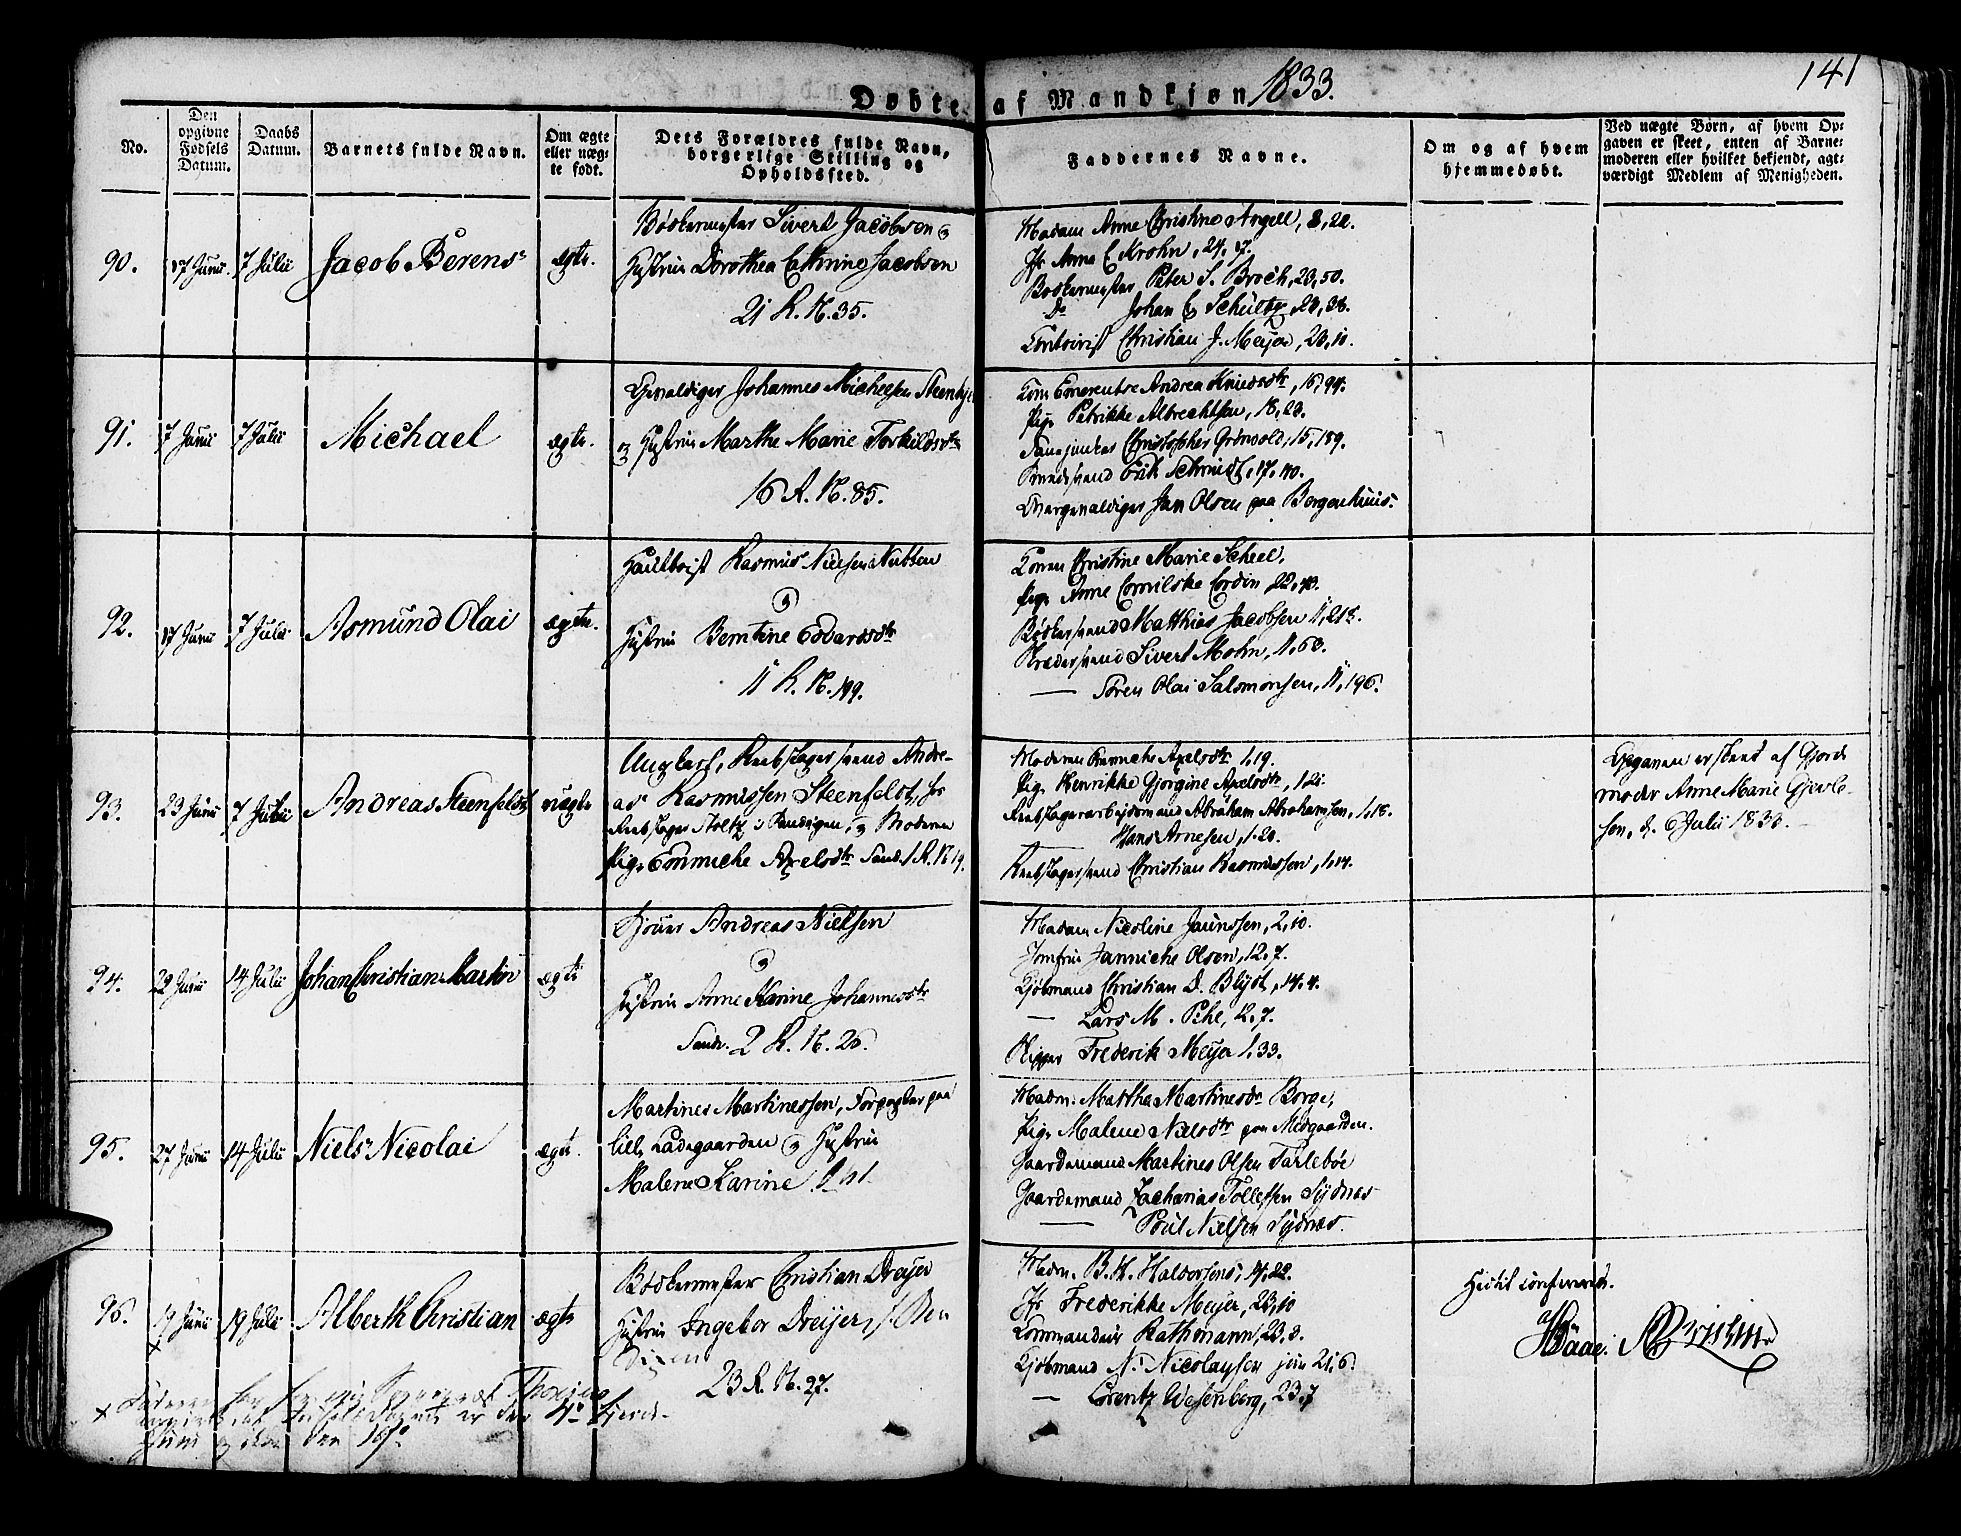 Døbte af Mandkjøn 1833.
141
No.
Den opgivne Fødsels Datum.
Daabs Datum.
Barnets fulde Navn.
Om ægte eller uæg-te født.
Dets Forældres fulde Navn, borgerlige Stilling og Opholdssted.
Faddernes Navne.
Om og af hvem hjemmedøbt.
Ved uægte Børn, af hvem Op-
gaven er skeet, enten af Barne-
moderen eller hvilket bekjendt, agt-
værdigt Medlem af Menigheden.
90.
17 Junii
7 Julii
Jacob Berens
ægte.
Bødkermester Sivert Jacobsen og
Hustrue Dorothea Cathrine Jacobsen
21 R. N. 35.
Madam Anne Christine Angell, 8, 20.
Jfr Anna C. Krohn, 24, 17.
Bødkermester Peter S. Broch, 23, 50.
Do Johan C. Schultz, 23, 38.
Contoirist Christian J. Meyer, 23, 10.
91.
7 Junii
7 Julii
Michael
ægte.
Gevaldiger Johannes Michelsen
og Hustrue Marthe Marie Torkildsdtr
16 R. N. 85.
Pige Petrikke Albrechtsen, 18, 23.
Christopher Grønvold, 15, 189.
Erik Schmidt, 17, 40.
Jan Olsen paa Bergenhuus.
92.
17 Junii
7 Julii
Asmund Olai
ægte.
Hautboist Rasmus Nielsen Nutten
og
Hustrue Berntine Edvardsdtr
11 R. N. 199.
Konen Christine Marie Scheel.
Pige Anne Cordin 22, 43.
Bødkersvend Matthias Jacobsen 11, 213.
Sivert Mohn, 11, 63.
— Søren Olai Salomonsen, 11, 196.
93.
23 Junii
7 Julii
Andreas Steenfeldt
uægte
Ungkarl, Rebslagersvend Andre-
as Rasmussen Steenfeldt, hos
Rebslager Stoltz i Sandvigen, og Moderen
Pige Emmiche Axelsdtr Sandv. 1 R. N. 19.
Moderen Emmiche Axelsdtr 1, 19.
Pige Henrikke Gjorgine Axelsdtr, 1
Rebslagerarbeidsmand Abraham Abrahamsen, 1, 18.
Hans Arnesen, 1. 20.
Rebslagersvend Christian Rasmussen, 1, 14.
Opgaven er skeet af Gjorde
moder Anne Marie
sen, d. 6 Julii 1833. —
94.
22 Junii
14 Julii
Johan Christian Martin
ægte
Andreas Nielsen
og
Hustrue Anne Karine Johannesdtr
Sandv. 2 R. N. 26.
Madam Nicoline Jaunssen, 2, 10.
Jomfrue Janniche Olsen, 12, 7.
Kjøbmand Christian D. Blydt, 14. 4.
— Lars M. Pihl, 12, 7.
Skipper Frederik Meyer 1. 33.
95.
27 Junii
14 Julii
Niels Nicolai
ægte.
Martines Martinessen, Forpagter paa
lille Ladegaarden og Hustrue
Malene Karine
Madm. Martha Martinesdr Borge,
Pige Malene Nielsdtr paa Midgaarden.
Gaardmand Martines Olsen Tarlebøe
Gaardmand Zacharias Tollefsen Sydnæs
— Poul Nielsen Sydnæs.
96.
19 Junii
×
19 Julii
Alberth Christian
ægte
Bødkermester Christian Dreyer
Hustrue Ingebor Dreyer, f. Ben
dixen
23 R. N. 27.
Madm. B. H. Halvorsens, 14, 22.
Jfr Frederikke Meyer, 23, 10
Commandeur Rathmann, 23, 8.
Kjøbmand N. Nicolaysen jun 21, 6.
— Lorentz Wesenberg, 23, 7
Hidtil confereret.
×
Junii og ikke den 19de